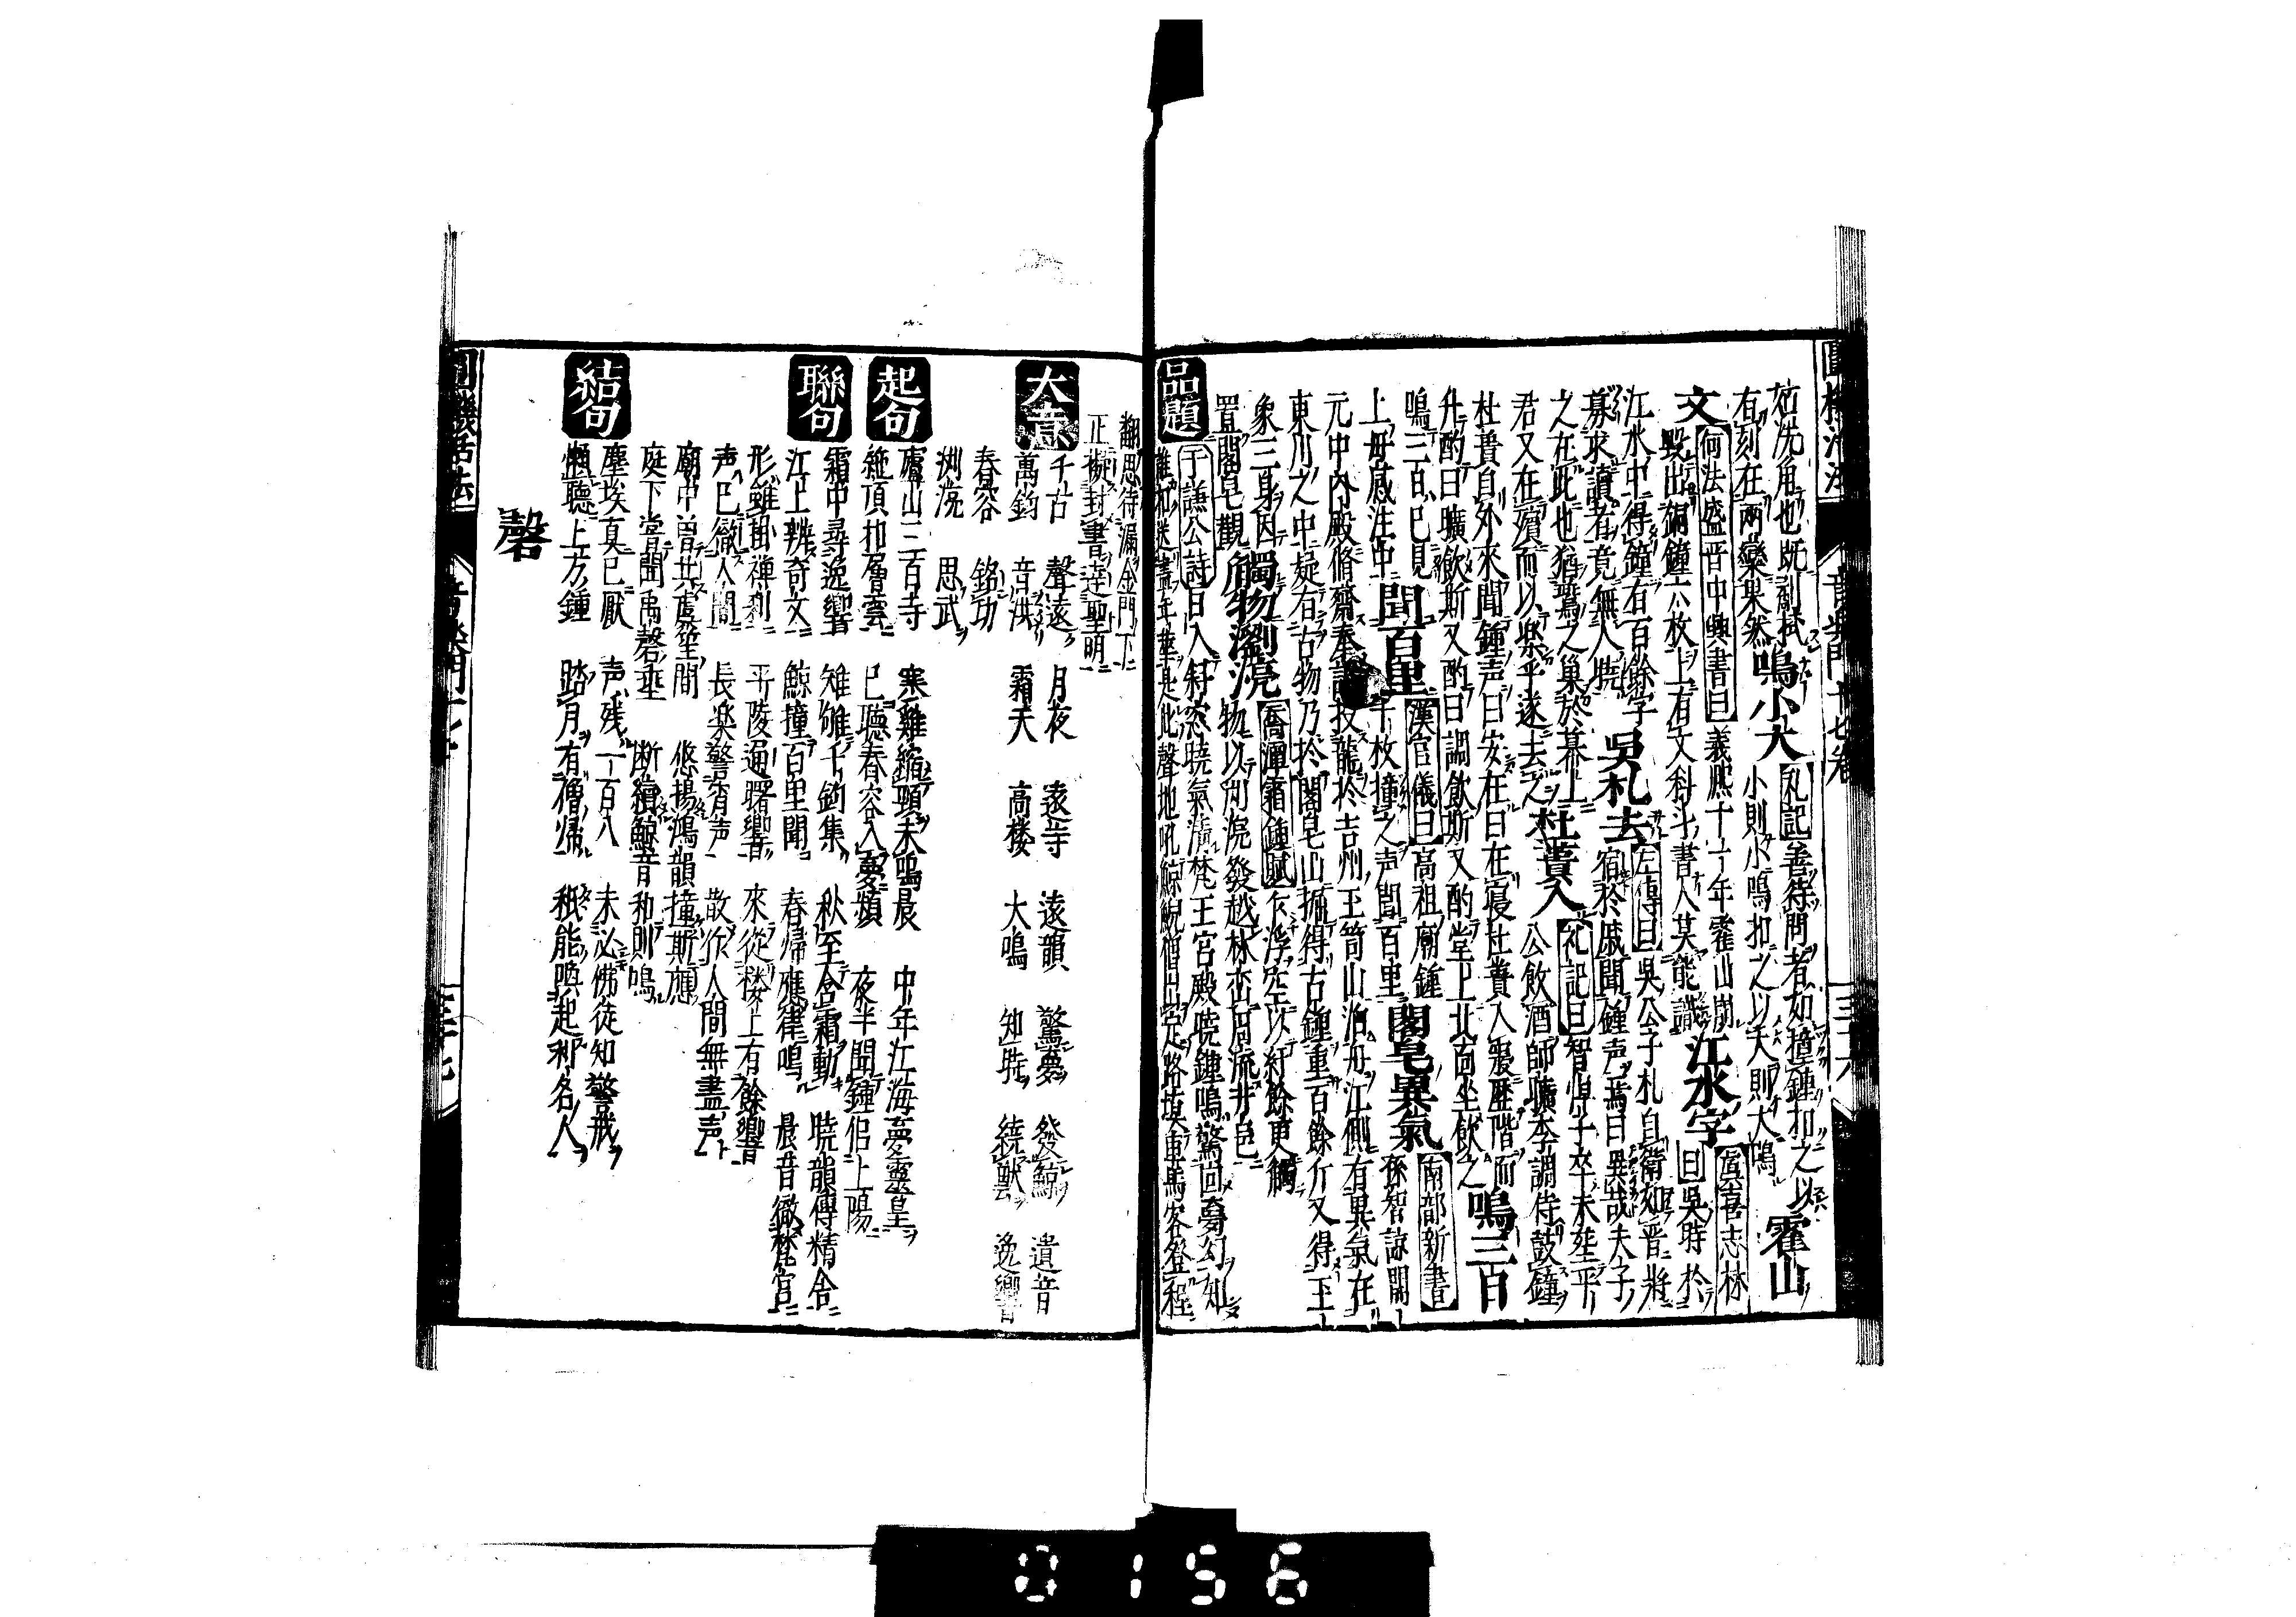 姑洗角也既剖拭
有刻在兩欒果然
鳴小大
礼記善待問者如撞鍾扣之以
小則小鳴扣之以大則大鳴
霍山
文
何法盛晋中興書曰義熈十一年霍山崩
毀出銅鐘六枚上有文科斗書人莫能識
江水字
虞喜志林
曰吳時於
江水中得鐘有百餘字
募求讀者竟無人曉
吳札去
左傳曰吳公子札自衛如晋將
宿於戚聞鍾声焉曰異哉夫子
之在此也猶鷰之巢於幕上
君又在殯而以楽乎遂去之
杜蕢入
礼記曰智悼子卒未塟平
公飲酒師曠李調侍鼓鐘
杜蕢自外來聞鐘声曰安在曰在寢杜蕢入寢歷階而
升酌曰曠飲斯又酌曰調飲斯又酌堂上北面坐飲之
鳴三百
鳴三百已見
上毋感注中
聞百里
漢官儀曰高祖廟鍾
十枚撞之声聞百里
閣皂異氣
南部新書
孫智諒開
元中內殿脩齋奉詔投龍於吉州玉笥山泊舟江側有異氣在
東川之中疑有古物乃於閣皂山掘得古鍾重百餘斤又得玉
象三身因
置閣皂觀
觸物瀏浣
喬潭霜鍾賦
物以瀏浣發越林巒
品題
于謙公詩
曰入紆窓曉氣清梵王宮殿曉鍾鳴驚回夢幻知
誰松送盡年華是此聲地吼鯨鯢僧出定路填車馬客登程
翻思待漏金門下
正擬封書達聖明
大意
千古　聲遠　月夜　遠寺　遠韻　驚夢　發鯨　遺音
萬鈞　音洪　霜天　高楼　大鳴　知時　繞獸　逸響
春容　銘功
浏浣　思武
起句
廬山三百寺　寒雞縮頸未鳴晨　中年江海夢靈皇
絶頂扣層雲　已聴春容入夢頻　夜半聞鍾侶上陽
聯句
霜中尋逸響　雉雊千鈞集　秋至含霜動　曉韻傳精舎
江上辨奇文　鯨撞百里聞　春帰應律鳴　晨音徹梵宮
形雖掛禅刹　平陵通曙響　來從楼上有餘響
声已徹人間　長楽警宵声　散作人間無盡声
廟中曽共虡簨間　悠揚鴻韻撞斯應
庭下嘗聞禹磬垂　断續鯨音和則鳴
結句
塵埃真已厭　声残一百八　未必佛徒知警戒
懶聴上方鍾　踏月有僧帰　秖能喚起利名人
磬